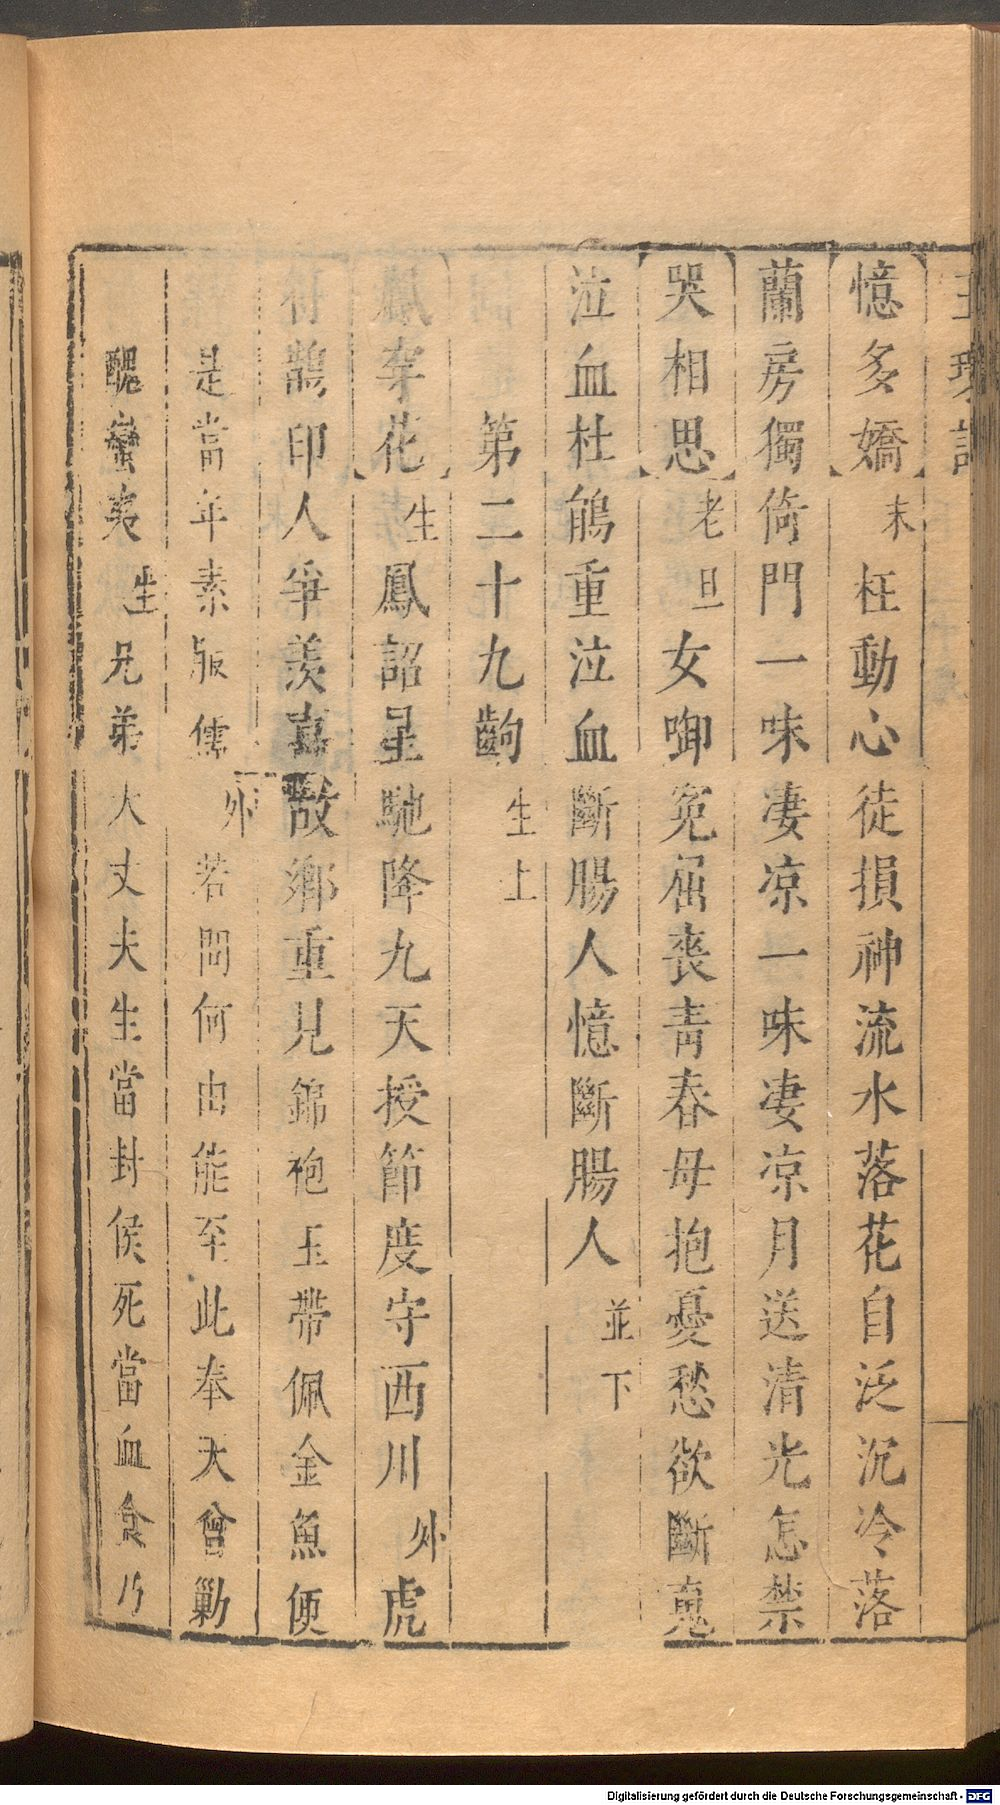 玉環記
憶多嬌 末 枉動心徒損神流水落花自泛沉冷落
蘭房獨倚門一味凄凉一味凄凉月送清光怎禁
哭相思 老旦 女啣冤屈喪青春母抱憂愁欲斷䰟
泣血杜鵑重泣血斷腸人憶斷腸人 並下
第二十九齣 生上
鳳㧱花 生 鳳詔星馳降九天授節度守西川 外 虎
符鵲印人爭羨喜散鄉重見錦袍玉帶佩金魚便
是當年素服儒 外 若問何由能至此奉天會勦
醜蠻夷 生 兄弟大丈夫生當封侯死當血食
Digitalisierung gefördert durch die Deutsche Forschungsgemeinschaft - DFG